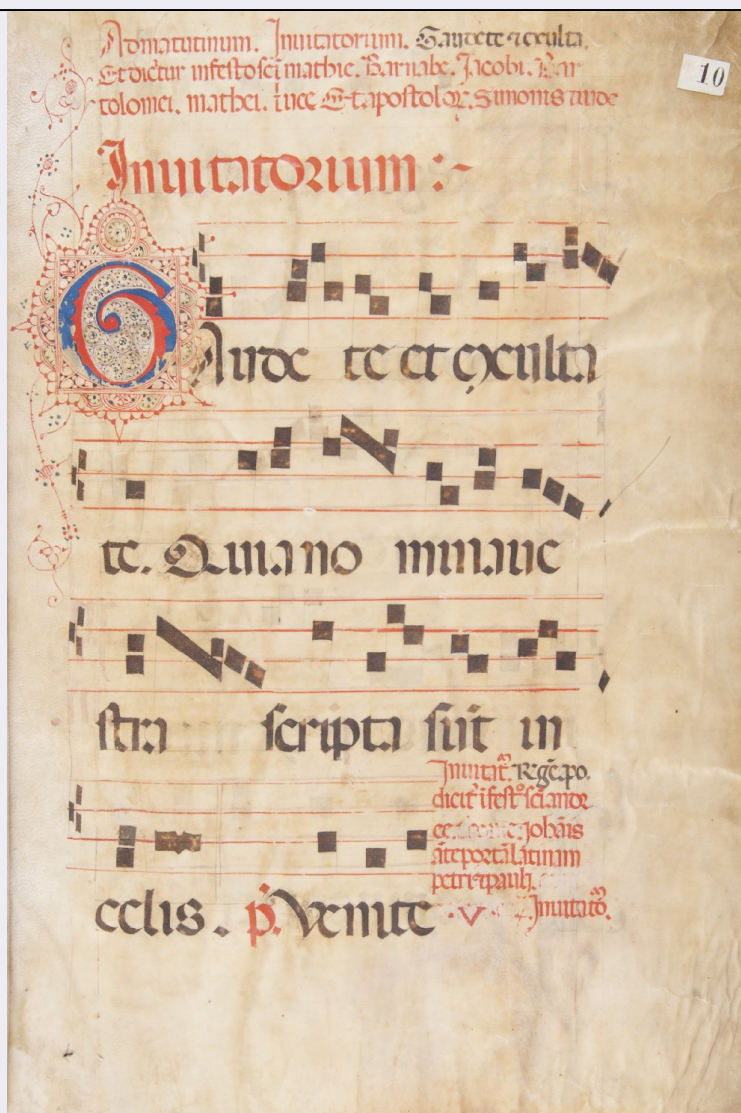 Admatutinum. Inuitatorium. Gaudete ⁊ exulta.
Et dicitur infesto sci mathie. Barnabe. Jacobi. Bar
tolomei. mathei. luce Et apostolоꝝ. Simonis ⁊ iude
10
Inuitatorium :~
GAude te et exculta
te. Quia no mina ue
stra scripta sūt in
celis. p̄. Venite
Inuitat. Regē apo.
dicit̄ ī fest° scī andr
ee. Johāis
āte portā latinam
petri ⁊ pauli.
. v. Inuitato.